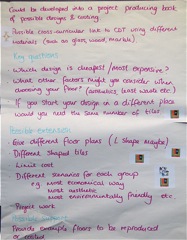 Could be developed into a project producing book
of possible designs & costing
Possible cross-curricular link to CDT using different
materials (such as glass, wood, marble).
Key questions
Which design is cheapest / most expensive?
What other factors might you consider when
choosing your floor? (aesthetics, least waste etc)
If you start your design in a different place
would you need the same number of tiles
Possible extension
Give different floor plans (L shape maybe)
Different shaped tiles
Limit cost
Different scenarios for each group
e.g. most economical way
most aesthetic
most environmentally friendly etc
Project work
Provide example floors to be reproduced
or costing